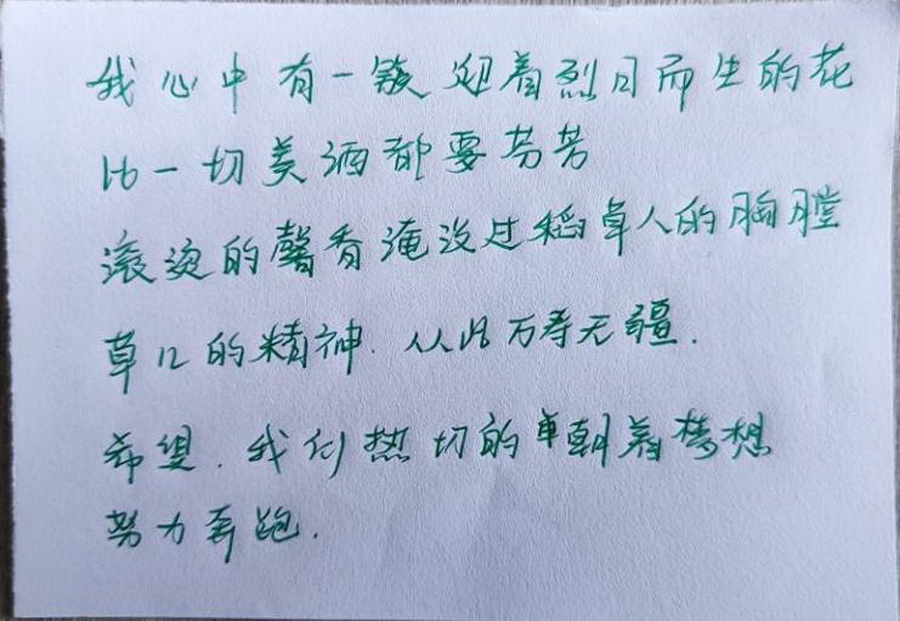 我心中有一簇迎着烈日而生的花
比一切美酒都要芬芳
滚烫的馨香淹没过稻草人的胸膛
草儿的精神.从此万寿无疆.
希望.我们热切的朝着梦想
努力奔跑.